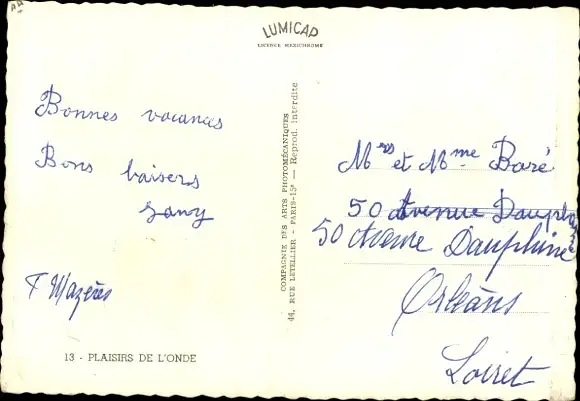 LUMICAP
LICENCE MEXICHROME
Bonnes vacances
Bons baisers
Dany
F Mazères
13 - PLAISIRS DE L'ONDE
COMPAGNIE DES ARTS PHOTOMÉCANIQUES
44, RUE LETELLIER - PARIS-15e - Reprod. interdite
Mrs et Mme Baré
50 Avenue Dauphine
50 Avenue Dauphine
Orléans
Loiret